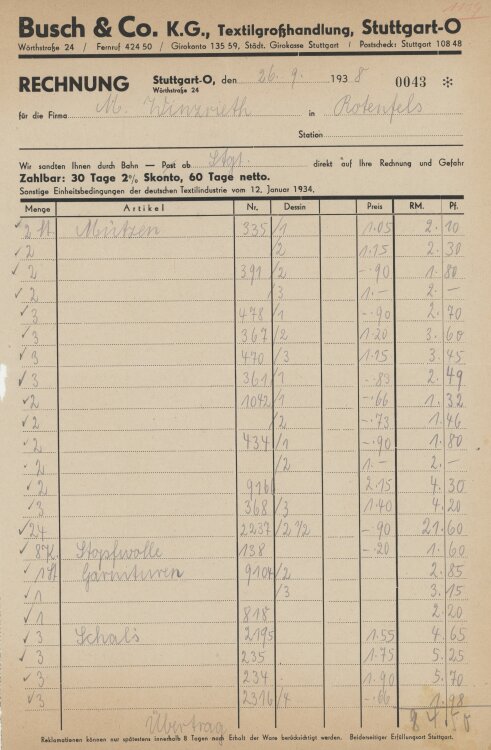 Busch & Co. K.G., Textilgroßhandlung, Stuttgart-O
Wörthstraße 24 / Fernruf 424 50 / Girokonto 135 59, Städt. Girokasse Stuttgart / Postscheck: Stuttgart 108 48
RECHNUNG Stuttgart-O, den 26. 9. 1938 0043 *
Wörthstraße 24
für die Firma M. Winzrieth in Rotenfels
Station
Wir sandten Ihnen durch Bahn — Post ab Stgt. direkt auf Ihre Rechnung und Gefahr
Zahlbar: 30 Tage 2% Skonto, 60 Tage netto.
Sonstige Einheitsbedingungen der deutschen Textilindustrie vom 12. Januar 1934.
Menge Artikel Nr. Dessin Preis RM. Pf.
2 St. Mützen 335 /1 1.05 2. 10
2 /2 1.15 2. 30
2 391 /2 -.90 1. 80
2 /3 1.— 2. —
3 478 /1 -.90 2. 70
3 367 /2 1.20 3. 60
3 470 /3 1.15 3. 45
3 361 /1 -.83 2. 49
2 1042 /1 -.66 1. 32
2 /2 -.73 1. 46
2 434 /1 -.90 1. 80
2 /2 1.— 2. —
2 916 2.15 4. 30
3 368 /3 1.40 4. 20
24 2237 /2 1/2 -.90 21. 60
8 K. Stopfwolle 138 -.20 1. 60
1 St Garnituren 9104 /2 2. 85
1 /3 3. 15
1 818 2. 20
3 Schals 2195 1.55 4. 65
3 235 1.75 5. 25
3 234 1.90 5. 70
3 2316 /4 -.66 1. 98
Übertrag 84.50
Reklamationen können nur spätestens innerhalb 8 Tagen nach Erhalt der Ware berücksichtigt werden. Beiderseitiger Erfüllungsort Stuttgart.